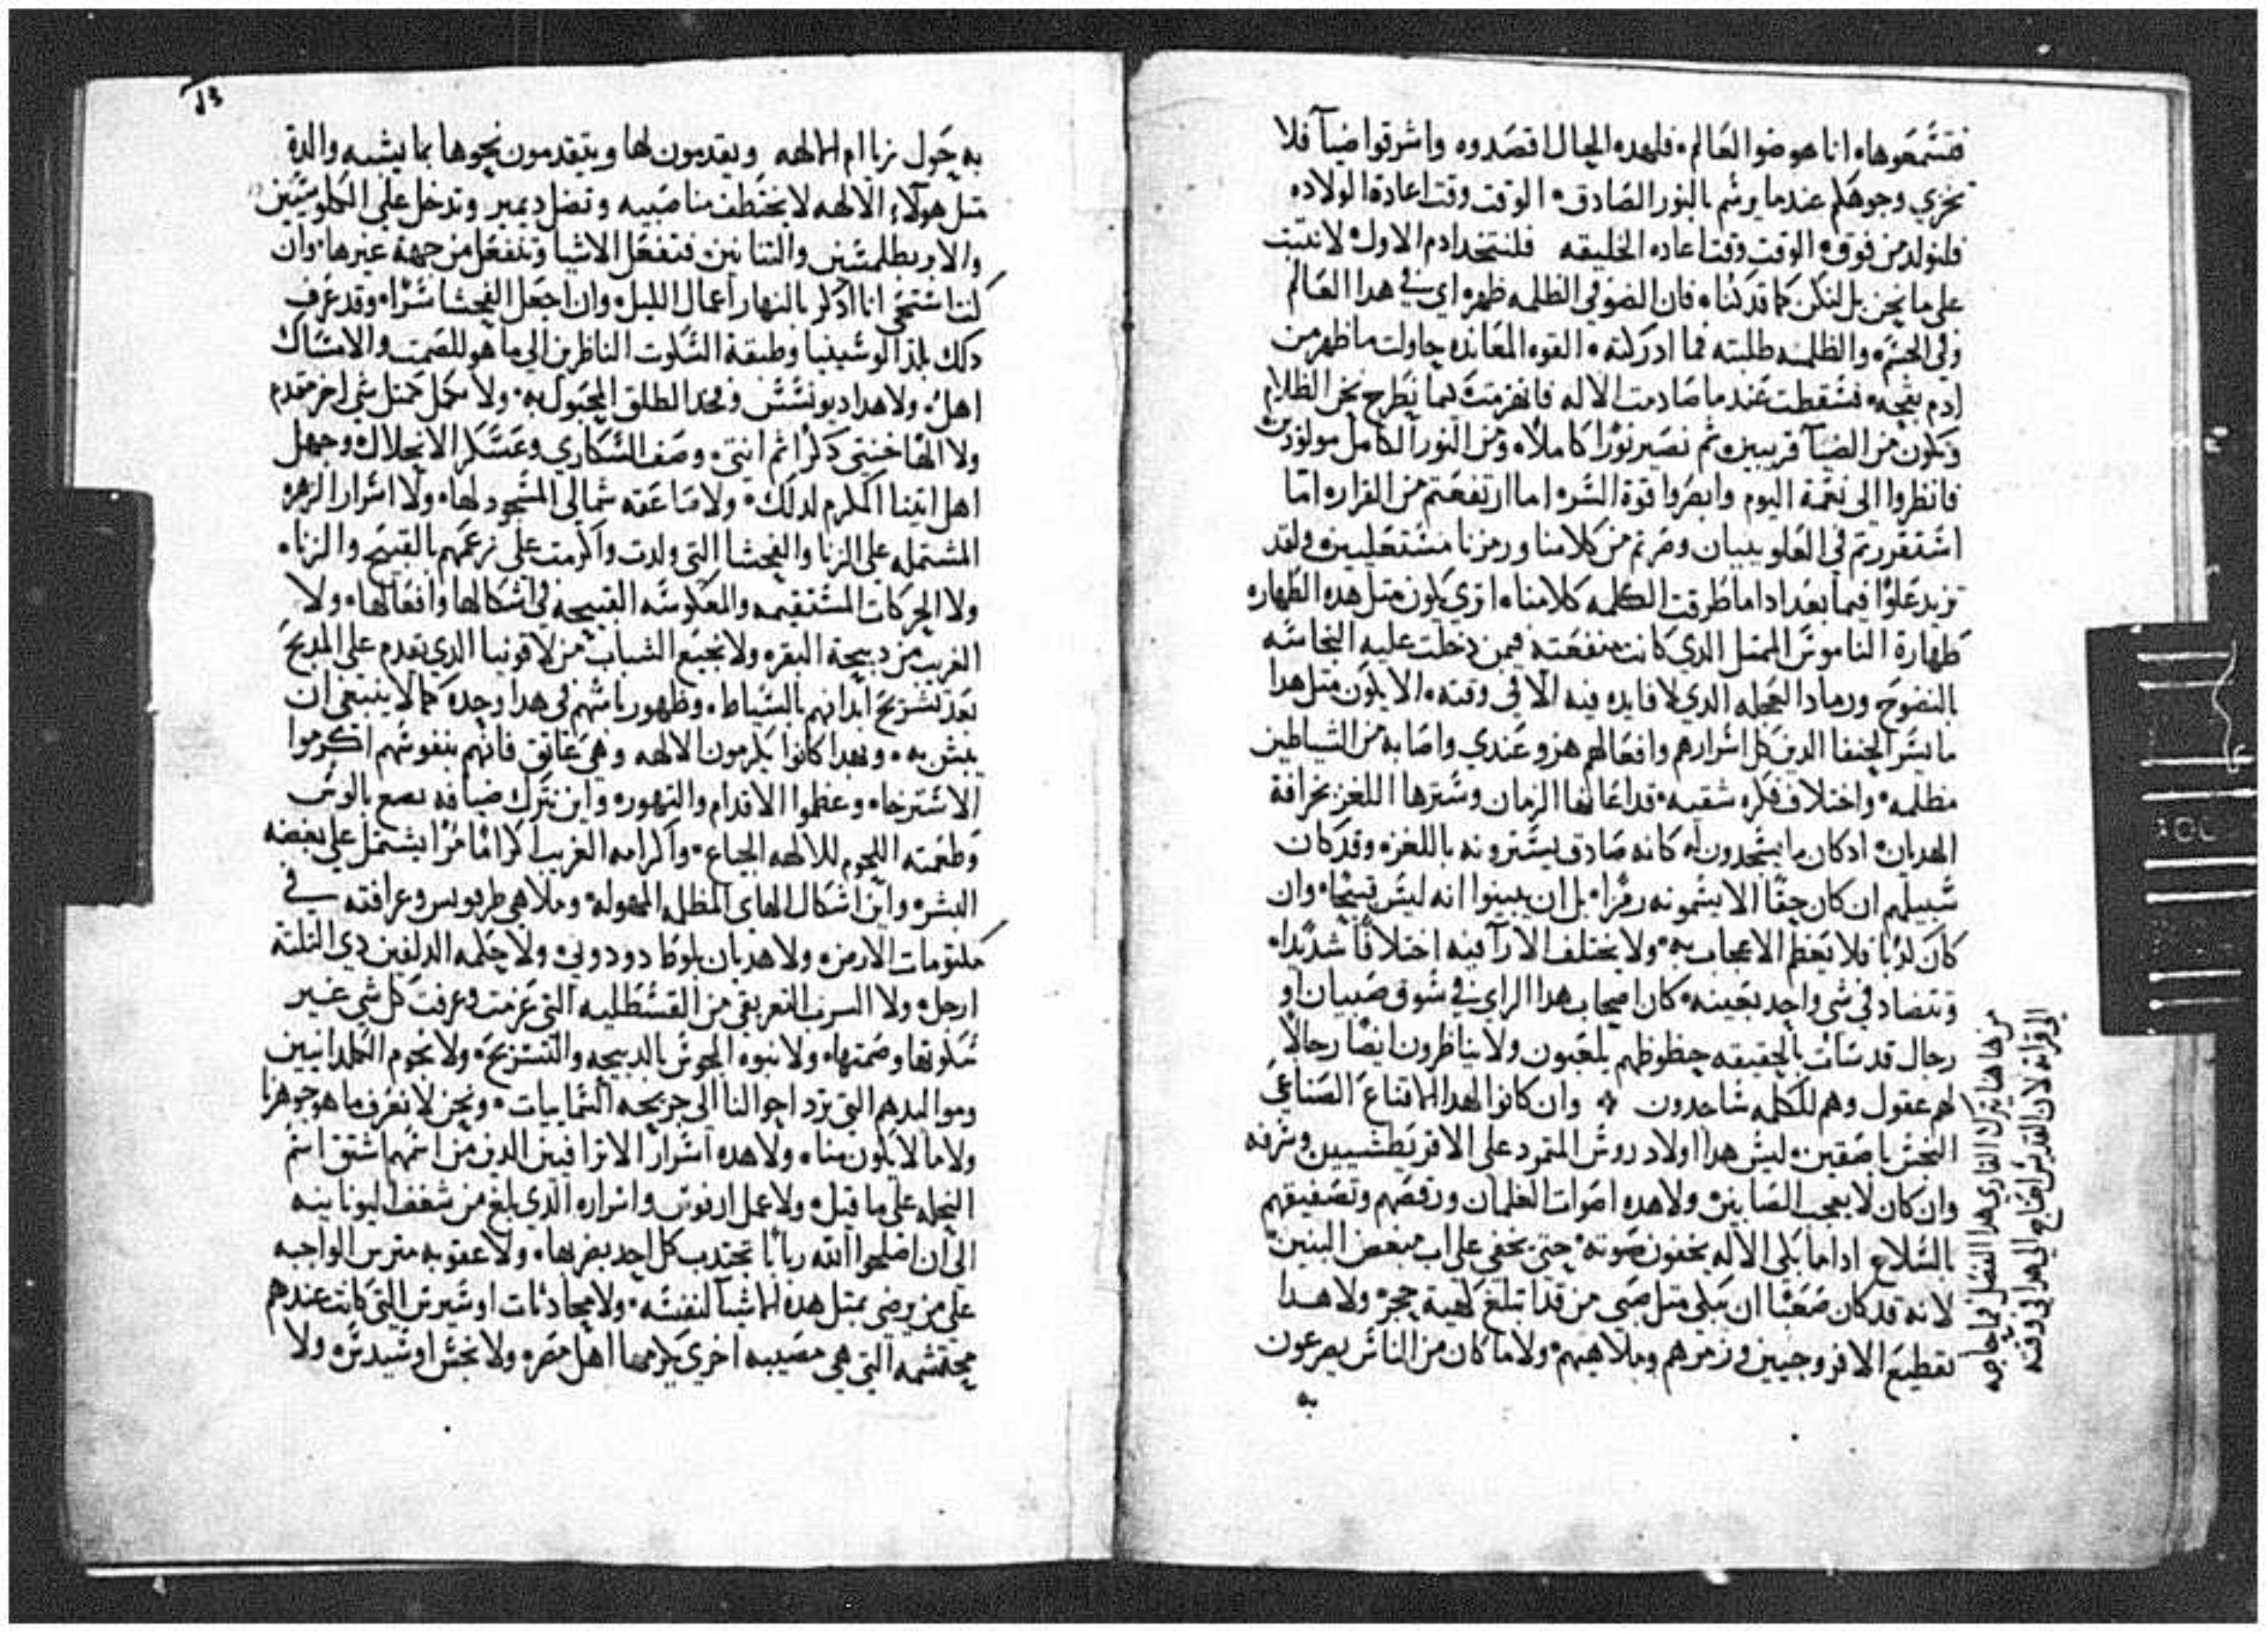 فتسمعوها انا هو ضوا العالم فلهده الحال اقصدوه واشرقوا ضيآ فلا
تخزي وجوهكم عندما يرشم بالنور الصادق الوقت وقت اعادة الولاده
فلنولد من فوق الوقت وقت اعاده الخليقه فلنتخد ادم الاول لا نتبت
على ما نحن بل لنكن كما قد كنا فان الضو في الظلمه ظهر اي في هدا العالم
وفي الجسم والظلمه طلبته فما ادركته القوه المعانده حاولت ما ظهر من
ادم بقحه فسقطت عندما صادمت الاله فانهزمت كيما نطرح نحن الظلام
ونكون من الضيآ قريبين ثم نصير نورا كاملا ومن النور الكامل مولودين
فانظروا الى نعمة اليوم وابصروا قوة السر اما ارتفعتم من القرار اما
استقررتم في العلو ببيان وصرتم من كلامنا ورمزنا مستعليين ولقد
نزيد علوا فيما بعد اداما طرقت الكلمه كلامنا اتري يكون متل هده الطهاره
طهارة الناموس الممتل الدي كانت منفعته فيمن دخلت عليه النجاسه
بالنضوح ورماد العجله الدي لا فايده فيه الا في وقته الا يكون متل هدا
ما يسر الحنفا الدين كل اسرارهم وافعالهم هزو عندي واصابه من الشياطين
مظلمه واختلاف فكره شقيه قد اعانها الزمان وسترها اللغز بخرافة
الهديان ادكان ما يسجدون له كانه صادق يسترونه باللغز وقد كان
سبيلهم ان كان حقا الا يسمونه رمزا بل ان يبينوا انه ليس قبيحا وان
كان كدبا فلا يعظم الاعجاب به ولا يختلف الارآ فيه اختلافا شديدا
وتتضاد في شي واحد بعينه كان اصحاب هدا الراي في سوق صبيان او
رجال قد سات بالحقيقه حظوظهم يلعبون ولا يناظرون ايضا رجالا
لهم عقول وهم للكلمه ساجدون وان كانوا لهدا الاقناع الصناعي
النجس باصقين ليس هدا اولاد روس المتمرد على الاقريطشيين وسرقه
وان كان لا يعجب الصابين ولا هده اصوات الغلمان ورقصهم وتصفيقهم
بالسلاح اداما بكى الاله يخفون صوته حتى يخفي على اب مبغض البنين
لانه قد كان صعبا ان يبكى متل صبي من قد ابتلع كهية حجر ولا هدا
تقطيع الافروجيين وزمرهم وملاهيهم ولا ما كان من الناس يصرعون
به
من هاهنا يترك القاري هدا الفصل فما حاجه
الى قراته لان القديس احتاج الى هدا في وقته
به حول نريا ام الالهه ويقدمون لها ويتقدمون نحوها بما يشبه والدة
متل هولآء الالهه لا يختطف منا صبيه وتضل ديمير وتدخل على الكلوسيين
والاربطلمسين والتنانين فتفعل الاشيا وتنفعل من جهة غيرها وان
كنا استحي انا ادكر بالنهار اعمال الليل وان اجعل الفحشا سرا وقد عرف
دلك بلد الوسينيا وطبقة السكوت الناظرين الى ما هو للصمت والامساك
اهل ولا هدا ديونسس وفخد الطلق المحبول به ولا كمل كمتل شي اخر متقدم
ولا الها خنتى دكرا ثم انتى وصف السكاري وعسكر الانحلال وجهل
اهل اتينا المكرم لدلك ولا صاعقه شمالي المسجود لها ولا اسرار الزهره
المشتمله على الزنا والفحشا التي ولدت واكرمت على زعمهم بالقبيح والزنا
ولا الحركات المستقيمه والمعكوسه القبيحه في اشكالها وافعالها ولا
الغريب من دبيحة البقره ولا نجيع الشباب من لاقونيا الدي يقدم على المدبح
بعد تشريح ابدانهم بالسياط وظهور باسهم في هدا وحده كما لا ينبغي ان
يبش به وبهدا كانوا يكرمون الالهه وهي عاتق فانهم بنفوسهم اكرموا
الاسترخا وعظموا الاقدام والتهور واين نترك ضيافه بصع بالوس
وطعمته اللحوم للالهه الجياع واكرامه الغريب اكراما مرا يشتمل على بغضه
البشر واين اشكال الهاي المظلمه المهوله وملاهي طريويس وعرافته في
مكتومات الارض ولا هديان بلوط دودوني ولا حلمه الدلفين دي التلته
ارجل ولا السرب التعريقي من القسطليه التي عزمت وعرفت كل شي غير
سكوتها وصمتها ولا نبوه المجوس بالدبيحه والتشريح ولا نجوم الكلدانيين
ومواليدهم التي ترد احوالنا الى جريحه السمايات ونحن لا نعرف ما هو جوهرنا
ولا ما لا يكون منا ولا هده اسرار الاتراقيين الدين من اسمهم اشتق اسم
النحله على ما قيل ولا عمل ارنوس واسراره الدي بلغ من شغف اليونانيه
الى ان اصلحوا الته ربابا تجتدب كل احد بضربها ولا عقوبه متريس الواجبه
على من يرضي بمتل هده الاشيا لنفسه ولا محادثات اوسيرس التي كانت عندهم
محتشمه التي هي مصيبه اخري يكرمها اهل مصر ولا نحس اوسيدس ولا